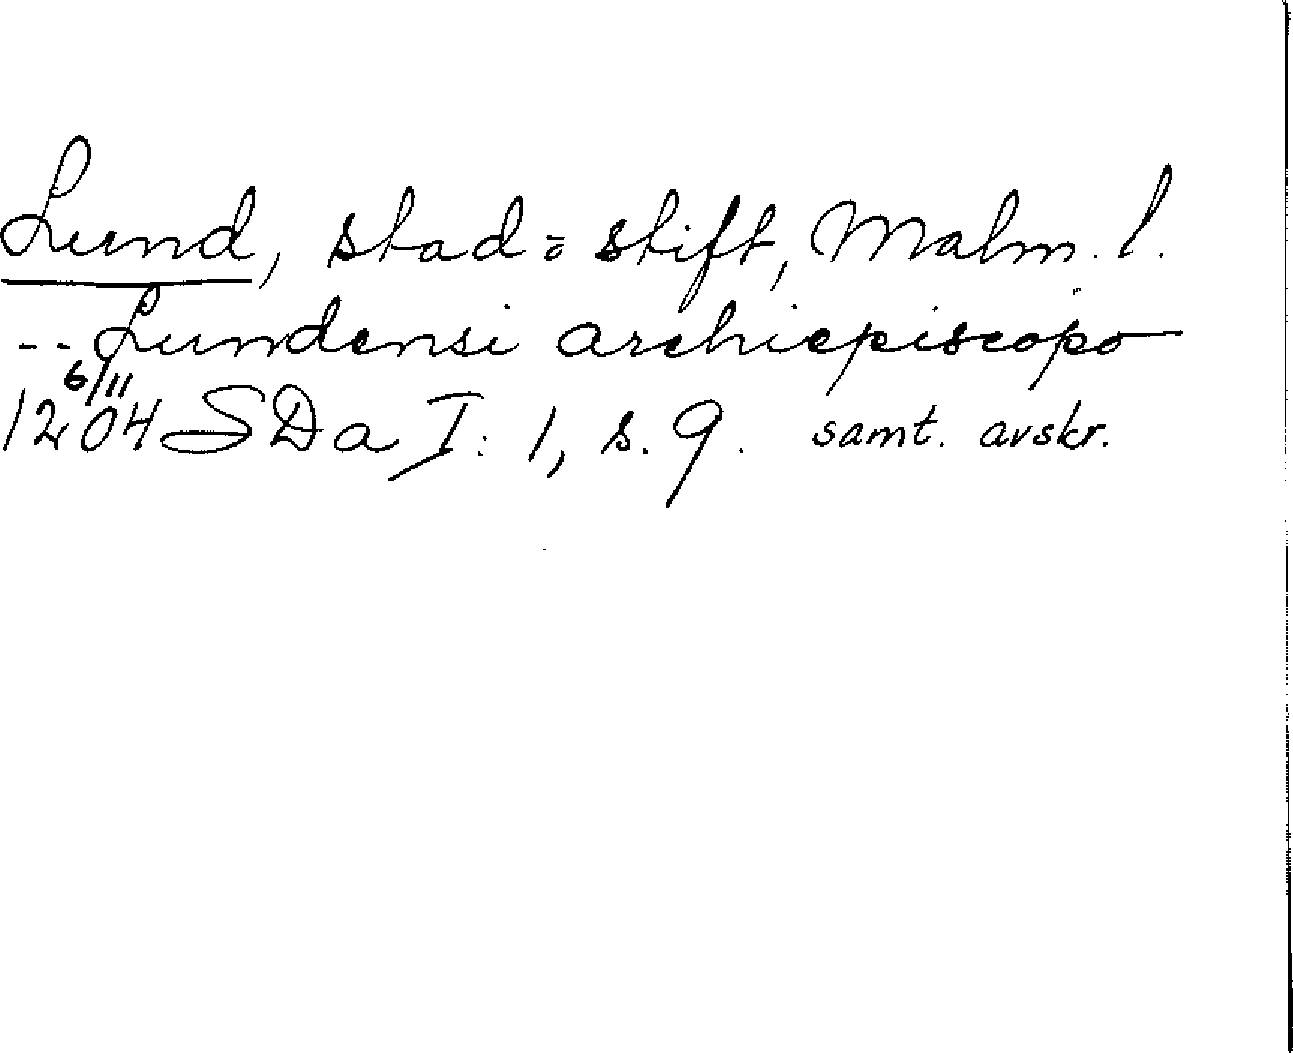 Lund, stad o stift, Malm. l.
-- Lundensi archiepiscopo
6/11
1204 SDa I: 1, s. 9. samt. avskr.